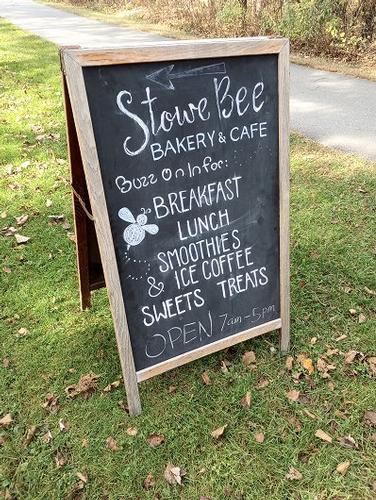 Stowe Bee
BAKERY & CAFE
Buzz On In for:
BREAKFAST
LUNCH
SMOOTHIES
& ICE COFFEE
SWEETS TREATS
OPEN 7am-5pm